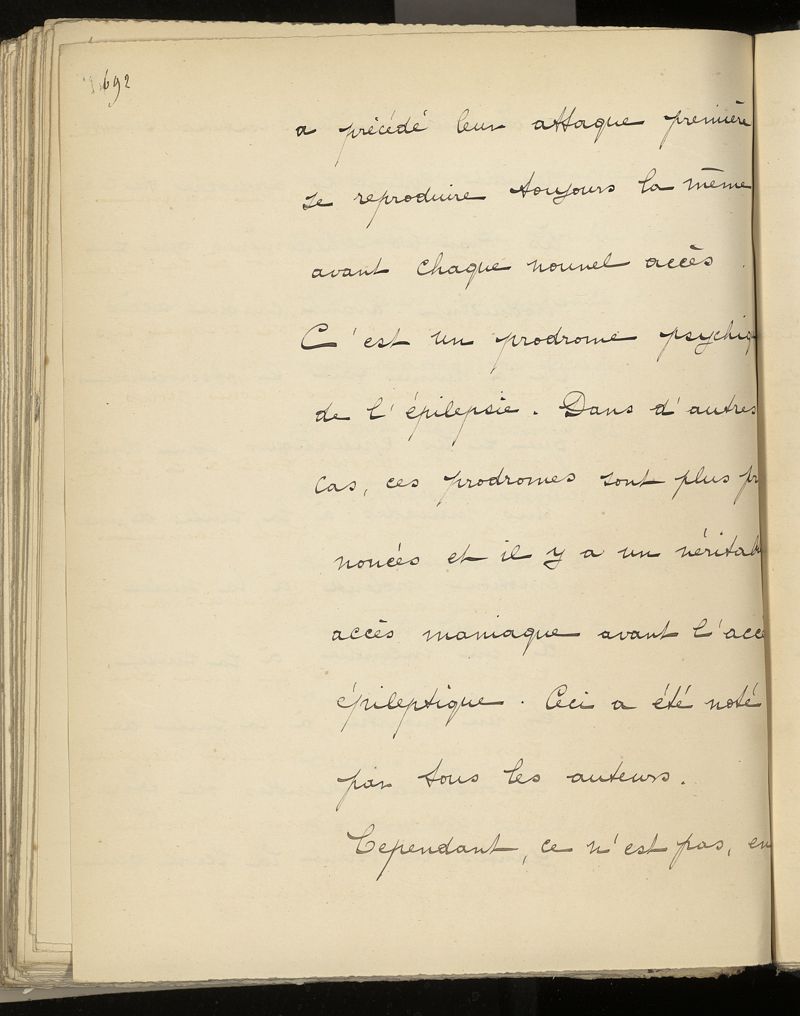 692
a précédé leur attaque première
se reproduire toujours la même
avant chaque nouvel accès.
C'est un prodrome psychiq
de l'épilepsie. Dans d'autres
cas, ces prodromes sont plus pr
noncés et il y a un véritab
accès maniaque avant l'accè
épileptique. Ceci a été noté
par tous les auteurs.
Cependant, ce n'est pas, en